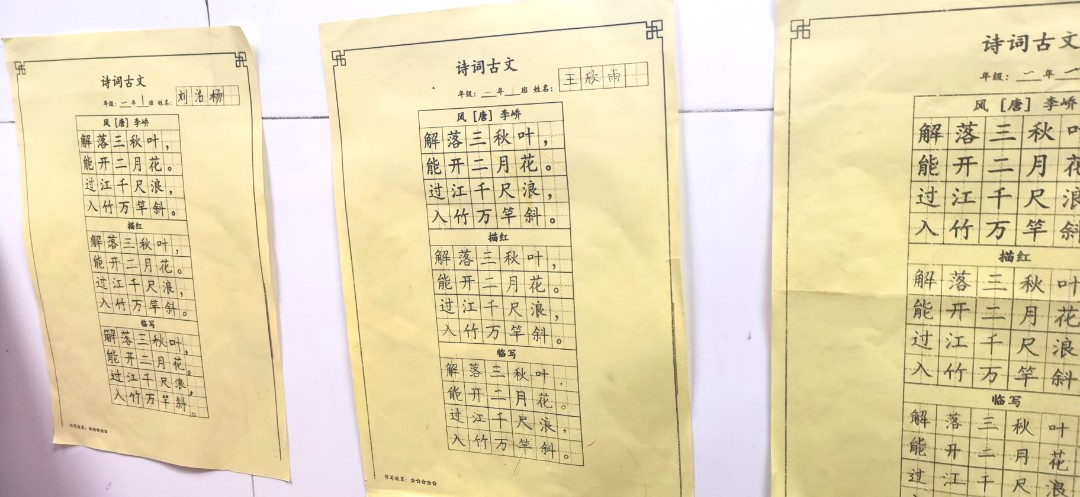 诗词古文
年级：一年1班 姓名：刘浩杨
风［唐］李峤
解落三秋叶，
能开二月花。
过江千尺浪，
入竹万竿斜。
描红
解落三秋叶，
能开二月花。
过江千尺浪，
入竹万竿斜。
临写
解落三秋叶，
能开二月花。
过江千尺浪，
入竹万竿斜。
☆☆☆☆☆
诗词古文
年级：一年1班 姓名：王欣雨
风［唐］李峤
解落三秋叶，
能开二月花。
过江千尺浪，
入竹万竿斜。
描红
解落三秋叶，
能开二月花。
过江千尺浪，
入竹万竿斜。
临写
解落三秋叶，
能开二月花。
过江千尺浪，
入竹万竿斜。
☆☆☆☆☆
诗词古文
年级：一年
风［唐］李峤
解落三秋叶
能开二月花
过江千尺浪
入竹万竿斜
描红
解落三秋叶
能开二月花
过江千尺浪
入竹万竿斜
临写
解落三秋叶
能开二月花
过江千尺浪